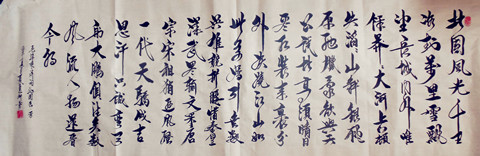 北国風光千里
冰封萬里雪飄
望長城內外唯
餘莽莽大河上下頓
失滔滔山舞銀蛇
原馳蠟象欲與天
公試比高須晴日
看紅裝素裹分
外妖嬈江山如
此多嬌引無數
英雄競折腰惜秦皇
漢武略輸文采唐
宗宋祖稍遜風騷
一代天驕成吉
思汗只識彎弓
射大鵰俱往矣數
風流人物還看
今朝